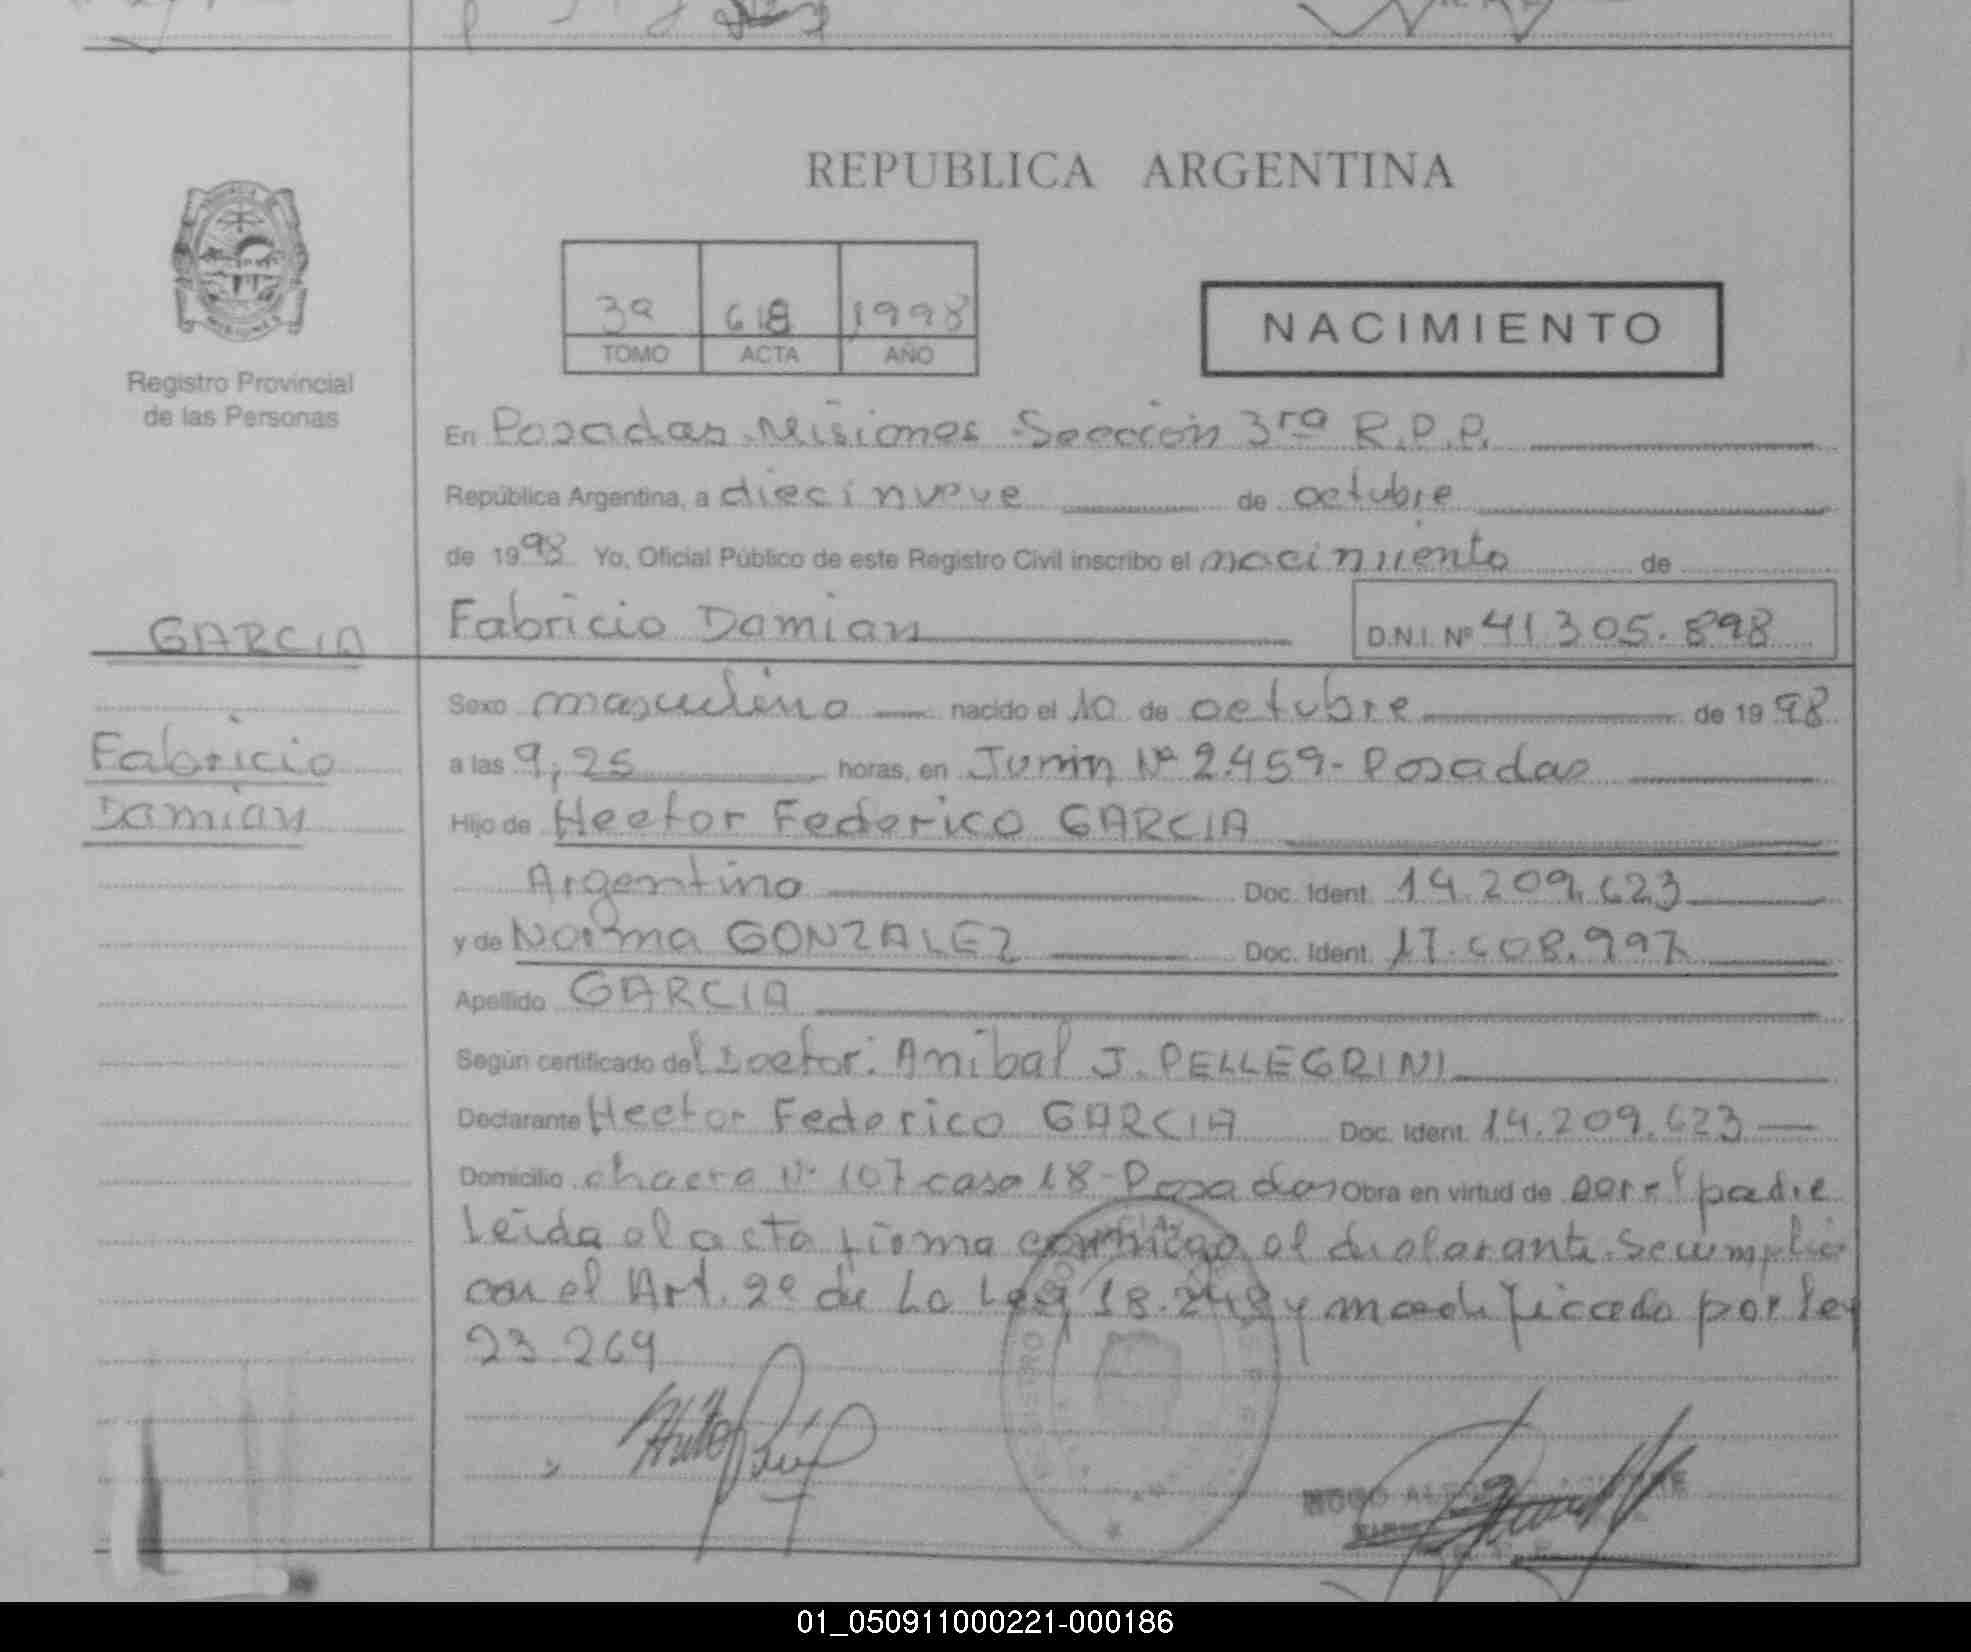 REPUBLICA ARGENTINA
3º 618 1998
TOMO ACTA AÑO
NACIMIENTO
Registro Provincial
de las Personas
En Posadas Misiones Sección 3ra R.P.P.
República Argentina, a diecinueve de octubre
de 1998 Yo, Oficial Público de este Registro Civil inscribo el nacimiento de
GARCIA
Fabricio Damian D.N.I. Nº 41.305.898
Fabricio
Damian
Sexo masculino nacido el 10 de octubre de 1998
a las 9,25 horas, en Junin Nº 2.459- Posadas
Hijo de Hector Federico GARCIA
Argentino Doc. Ident. 14.209.623
y de Norma GONZALEZ Doc. Ident. 17.608.997
Apellido GARCIA
Según certificado del Doctor: Anibal J. PELLEGRINI
Declarante Hector Federico GARCIA Doc. Ident. 14.209.623
Domicilio chacra Nº 107 casa 18-Posadas Obra en virtud de ser el padre
Leida el acta firma conmigo el declarante. Se cumplio
con el Art. 2º de La Ley 18.248 y modificado por ley
23.264
01_050911000221-000186